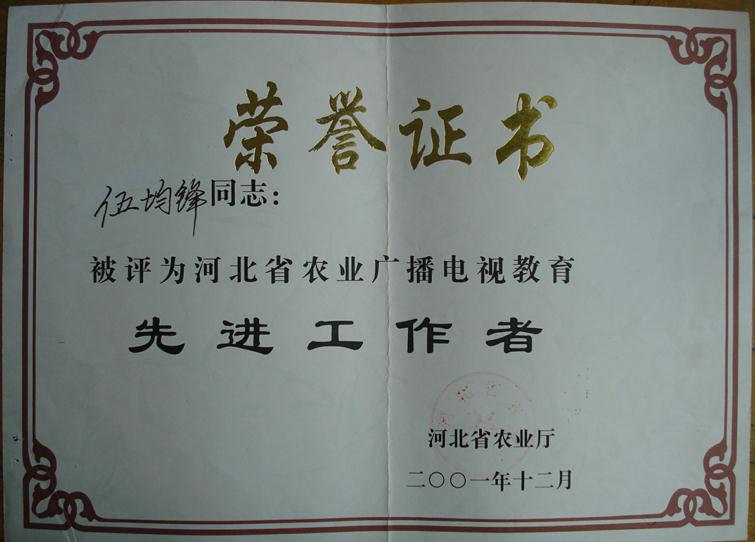 荣誉证书
伍均锋同志：
被评为河北省农业广播电视教育
先进工作者
河北省农业厅
二〇〇一年十二月